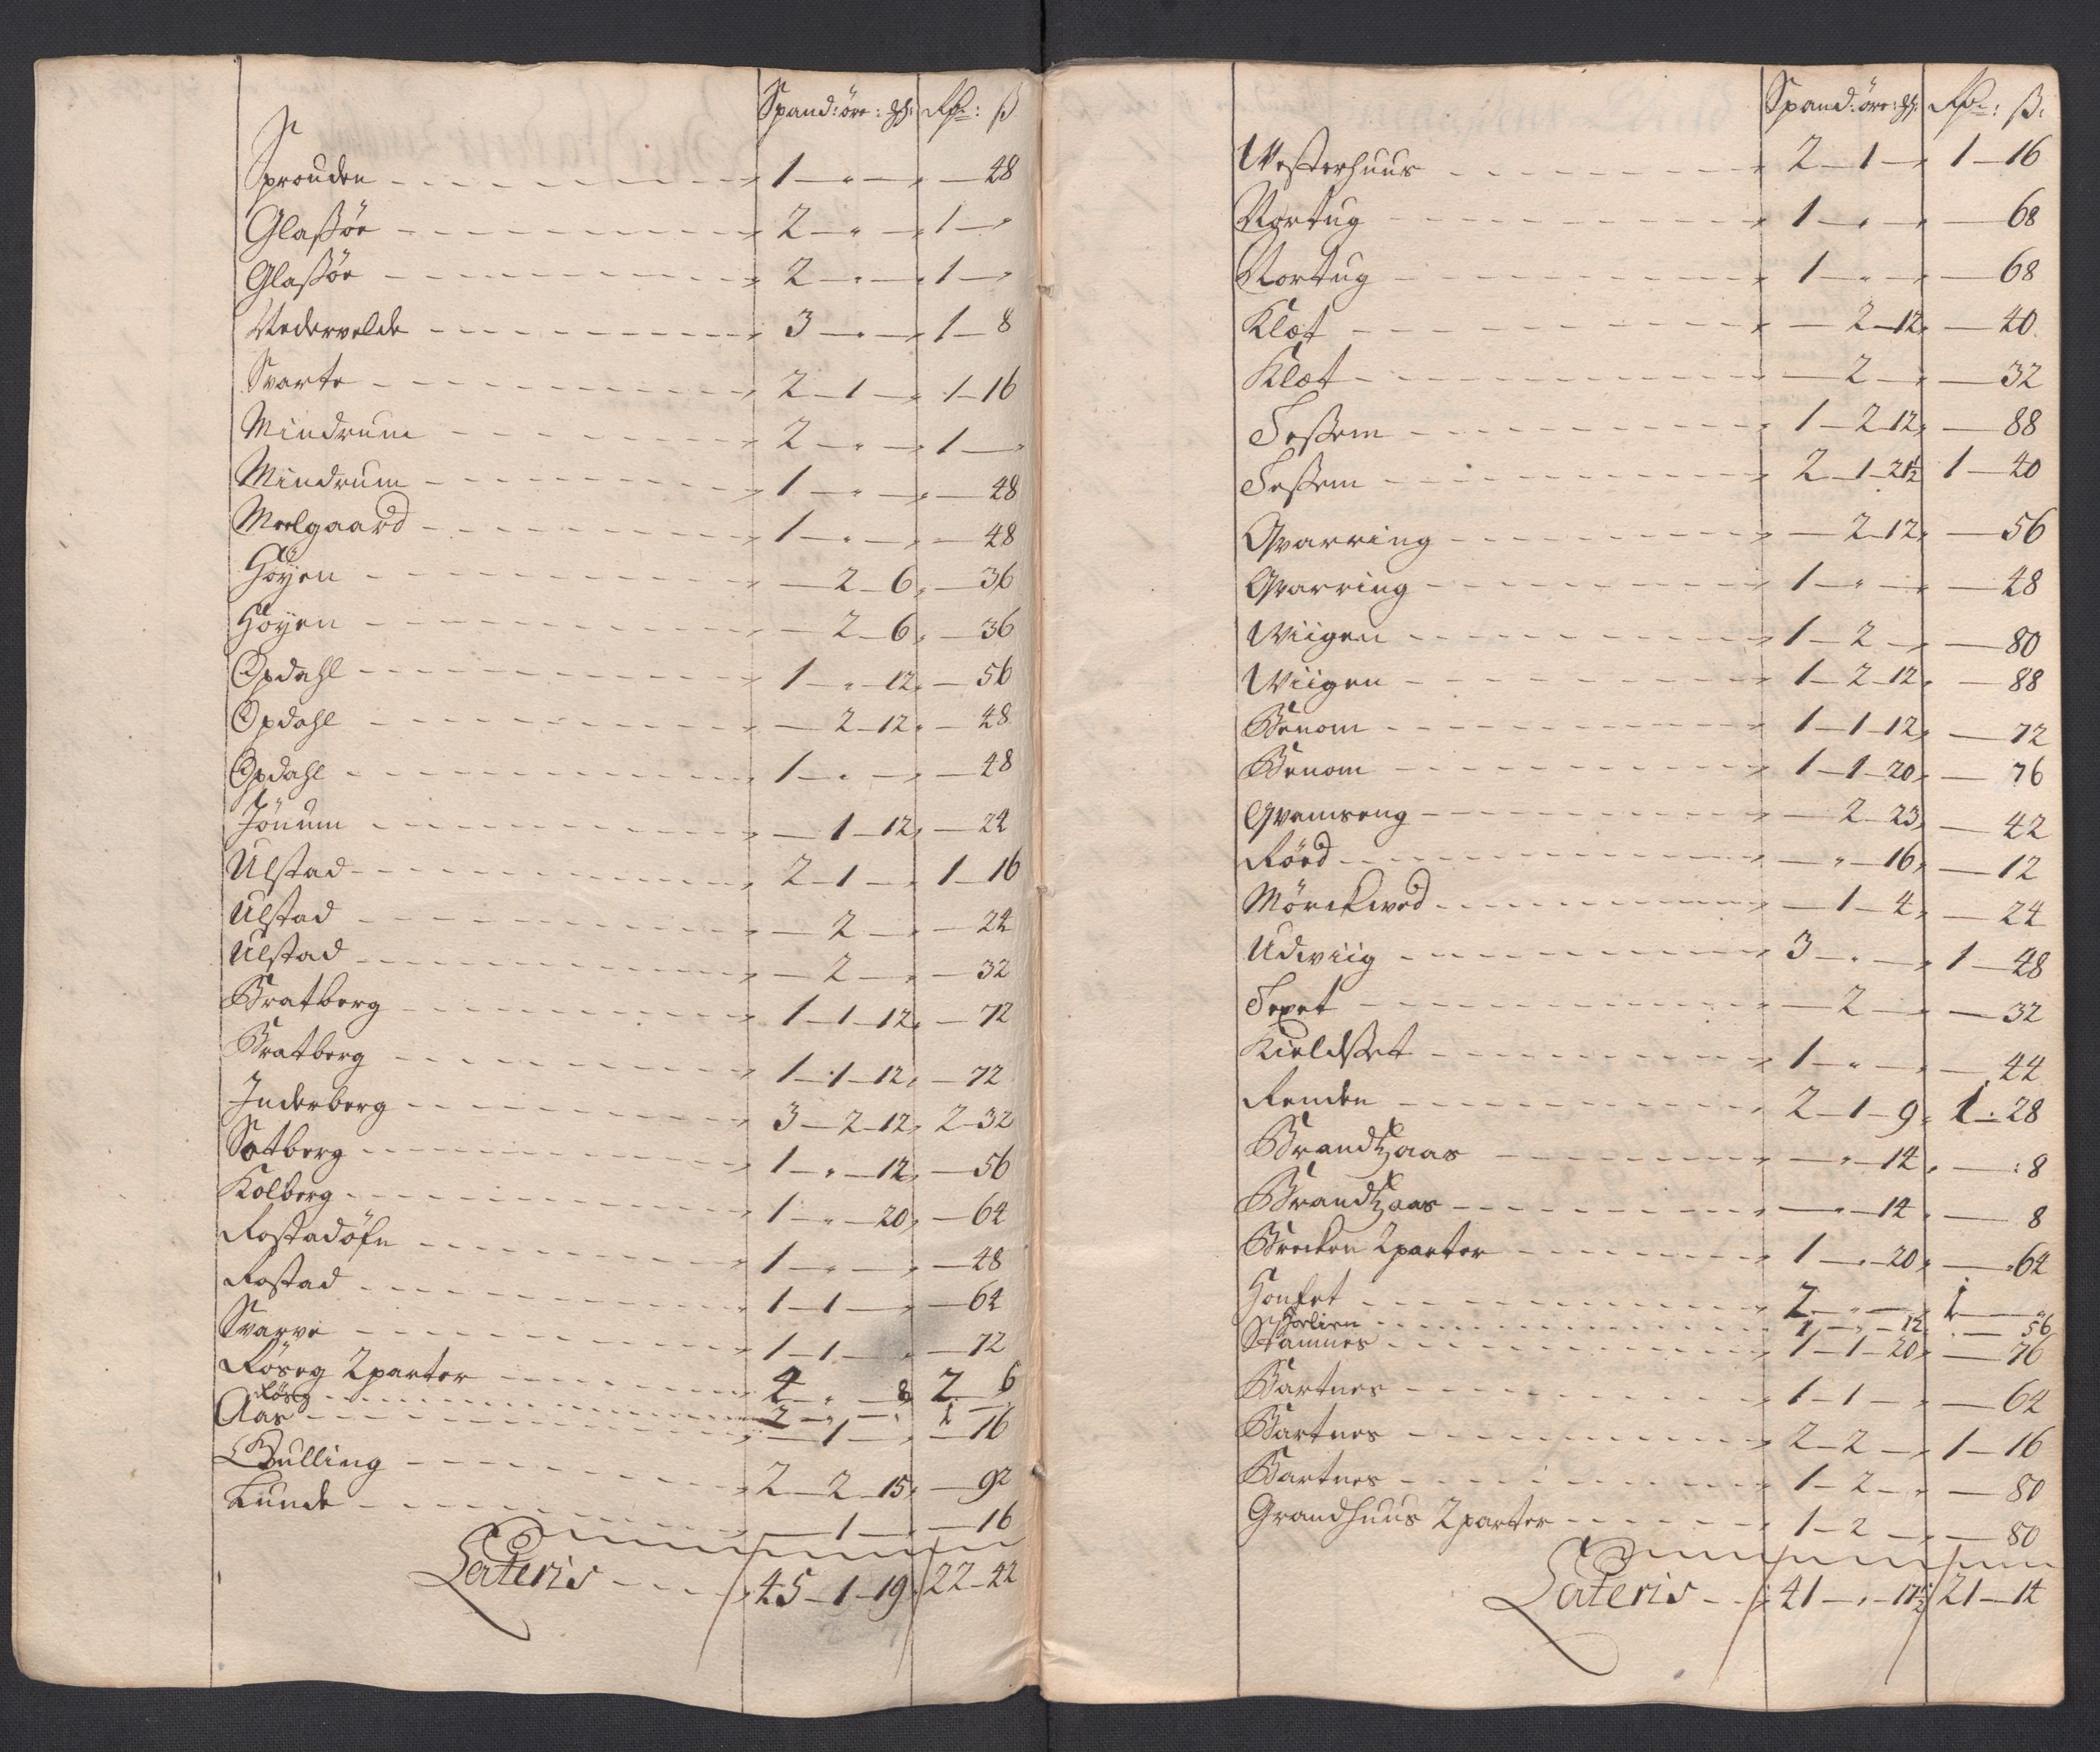 Spand: öre: Rdr: ß
Sprouden 1 — " — " — 48
Glaßöe 2 — " — " 1 — "
Glaßöe 2 — " — " 1 — "
Nedervelde 3 — " — " 1 — 8
Svarte 2 — 1 — " 1 — 16
Mindrum 2 — " — " 1 — "
Mindrum 1 — " — " — 48
Moelgaard 1 — " — " — 48
Höyen — 2 — 6 " — 36
Höyen — 2 — 6 " — 36
Opdahl 1 — " — 12 " — 56
Opdahl — 2 — 12 " — 48
Opdahl 1 — " — " — 48
Jönum — 1 — 12 " — 24
Ulstad 2 — 1 — " 1 — 16
Ulstad — 2 — " — 24
Ulstad — 2 — " — 32
Bratberg 1 — 1 — 12 " — 72
Bratberg 1 — 1 — 12 " — 72
Inderberg 3 — 2 — 12 " 2 — 32
Salberg 1 — " — 12 " — 56
Kolberg 1 — " — 20 " — 64
Rostadöfn 1 — " — " — 48
Rostad 1 — 1 — " — 64
Svarve 1 — 1 — " — 72
Röseg 2 parter 4 — " — 8 2 — 6
Röseg 2 — " — " 1 —
Aas — 1 — " — 16
Bulling 2 — 2 — 15 " — 92
Lunde — 1 — " — 16
Lateris 45 — 1 — 19 22 — 42
Spand: öre: Rdr: ß:
Westerhuus 2 — 1 — " 1 — 16
Nortug 1 — " — " — 68
Nortug 1 — " — " — 68
Klæt — 2 — 12 " — 40
Klæt — 2 — " — 32
Seßem 1 — 2 — 12 " — 88
Seßem 2 — 1 — 21½ 1 — 40
Qvarring — 2 — 12 " — 56
Qvarring 1 — " — " — 48
Wiigen 1 — 2 — " — 80
Wiigen 1 — 2 — 12 " — 88
Benom 1 — 1 — 12 " — 72
Benom 1 — 1 — 20 " — 76
Qvamseng — 2 — 23 " — 42
Röed — " — 16 " — 12
Mörckved — 1 — 4 " — 24
Udviig 3 — " — " 1 — 48
Sexet — 2 — " — 32
Kieldset 1 — " — " — 44
Remden 2 — 1 — 9 " 1 — 28
Brandtzaas — " — 14 " — : 8
Brandtzaas — " — 14 " — 8
Brecken 2 parter 1 — " — 20 " — 64
Honset 2 — " — " 1 — "
Horlien 1 — " — 12 — 56
Stamnes 1 — 1 — 20 " — 76
Bartnes 1 — 1 — " — 64
Bartnes 2 — 2 — " 1 — 16
Bartnes 1 — 2 — " — 80
Grandhuus 2 parter 1 — 2 — " — 80
Lateris 41 — " — 17½ 21 — 14